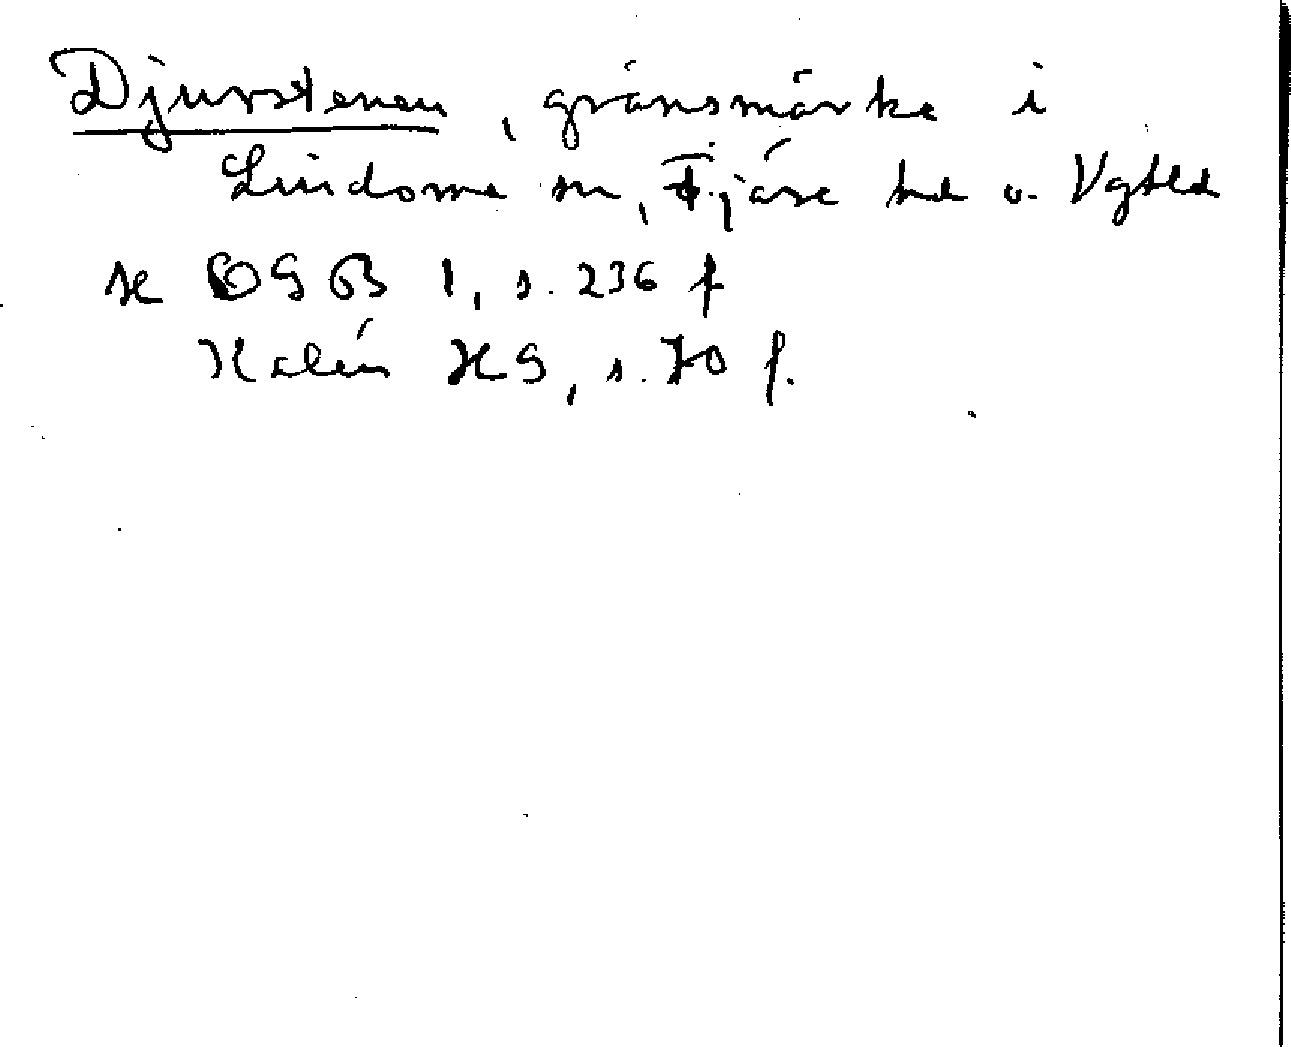 Djurstenen, gränsmärke i
Lindome sn, Fjäre hd o. Vgtld
se OGB 1, s. 236 f
Kalén HG, s. 70 f.